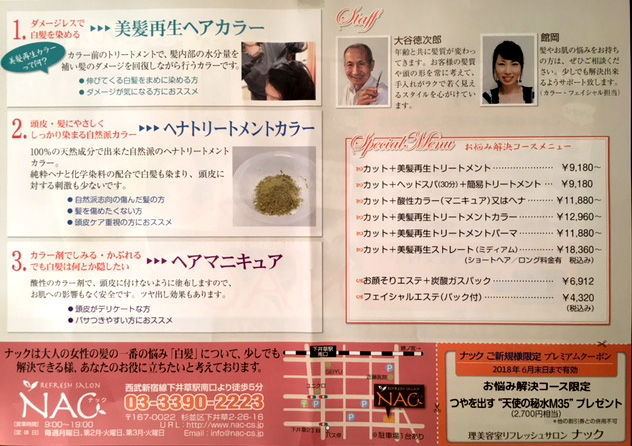 1. ダメージレスで
白髪を染める
▶▶▶美髪再生ヘアカラー
美髪再生カラー
って何?
カラー前のトリートメントで、髪内部の水分量を
補い髪のダメージを回復しながら行うカラーです。
●伸びてくる白髪をまめに染める方
●ダメージが気になる方におススメ
2. 頭皮・髪にやさしく
しっかり染まる自然派カラー
▶▶▶ヘナトリートメントカラー
100%の天然成分で出来た自然派のヘナトリートメント
カラー。
純粋ヘナと化学染料の配合で白髪も染まり、頭皮に
対する刺激も少ないです。
●自然派志向の傷んだ髪の方
●髪を傷めたくない方
●頭皮ケア重視の方におススメ
3. カラー剤でしみる・かぶれる
でも白髪は何とか隠したい
▶▶▶ヘアマニキュア
酸性のカラー剤で、頭皮に付けないように塗布しますので、
お肌への影響もなく安全です。ツヤ出し効果もあります。
●頭皮がデリケートな方
●パサつきやすい方におススメ
Staff
大谷徳次郎
年齢と共に髪質が変わっ
てきます。お客様の髪質
や頭の形を常に考えて、
手入れがラクで若く見え
るスタイルを心がけてい
ます。
館岡
髪やお肌の悩みをお持ち
の方は、ぜひご相談くだ
さい。少しでも解決出来
るようサポート致します。
(カラー・フェイシャル担当)
Special Menu お悩み解決コースメニュー
カット+美髪再生トリートメント ¥9,180~
カット+ヘッドスパ(30分)+簡易トリートメント ¥9,180
カット+酸性カラー(マニキュア)又はヘナ ¥11,880~
カット+美髪再生トリートメントカラー ¥12,960~
カット+美髪再生トリートメントパーマ ¥11,880~
カット+美髪再生ストレート(ミディアム) ¥18,360~
(ショートヘア/ロング料金有 税込み)
お顔そりエステ+炭酸ガスパック ¥6,912
フェイシャルエステ(パック付) ¥4,320
(税込み)
ナックは大人の女性の髪の一番の悩み「白髪」について、少しでも
解決できる様、あなたのお役に立ちたいと考えております。
REFRESH SALON
NAC ナック
【営業時間】9:00~19:00
【定休日】毎週月曜日、第2月・火曜日、第3月・火曜日
西武新宿線下井草駅南口より徒歩5分
03-3390-2223
〒167-0022 杉並区下井草2-26-16
URL:http://www.nac-cs.jp
Email:info@nac-cs.jp
下井草駅
南口
SEIYU
ユニクロ
REFRESH SALON
NAC
※駐車場1台あり
ナック ご新規様限定 プレミアムクーポン
2018年6月末日まで有効
お悩み解決コース限定
つやを出す“天使の秘水M35”プレゼント
(2,700円相当)
*他の割引券との併用不可
理美容室リフレッシュサロン ナック